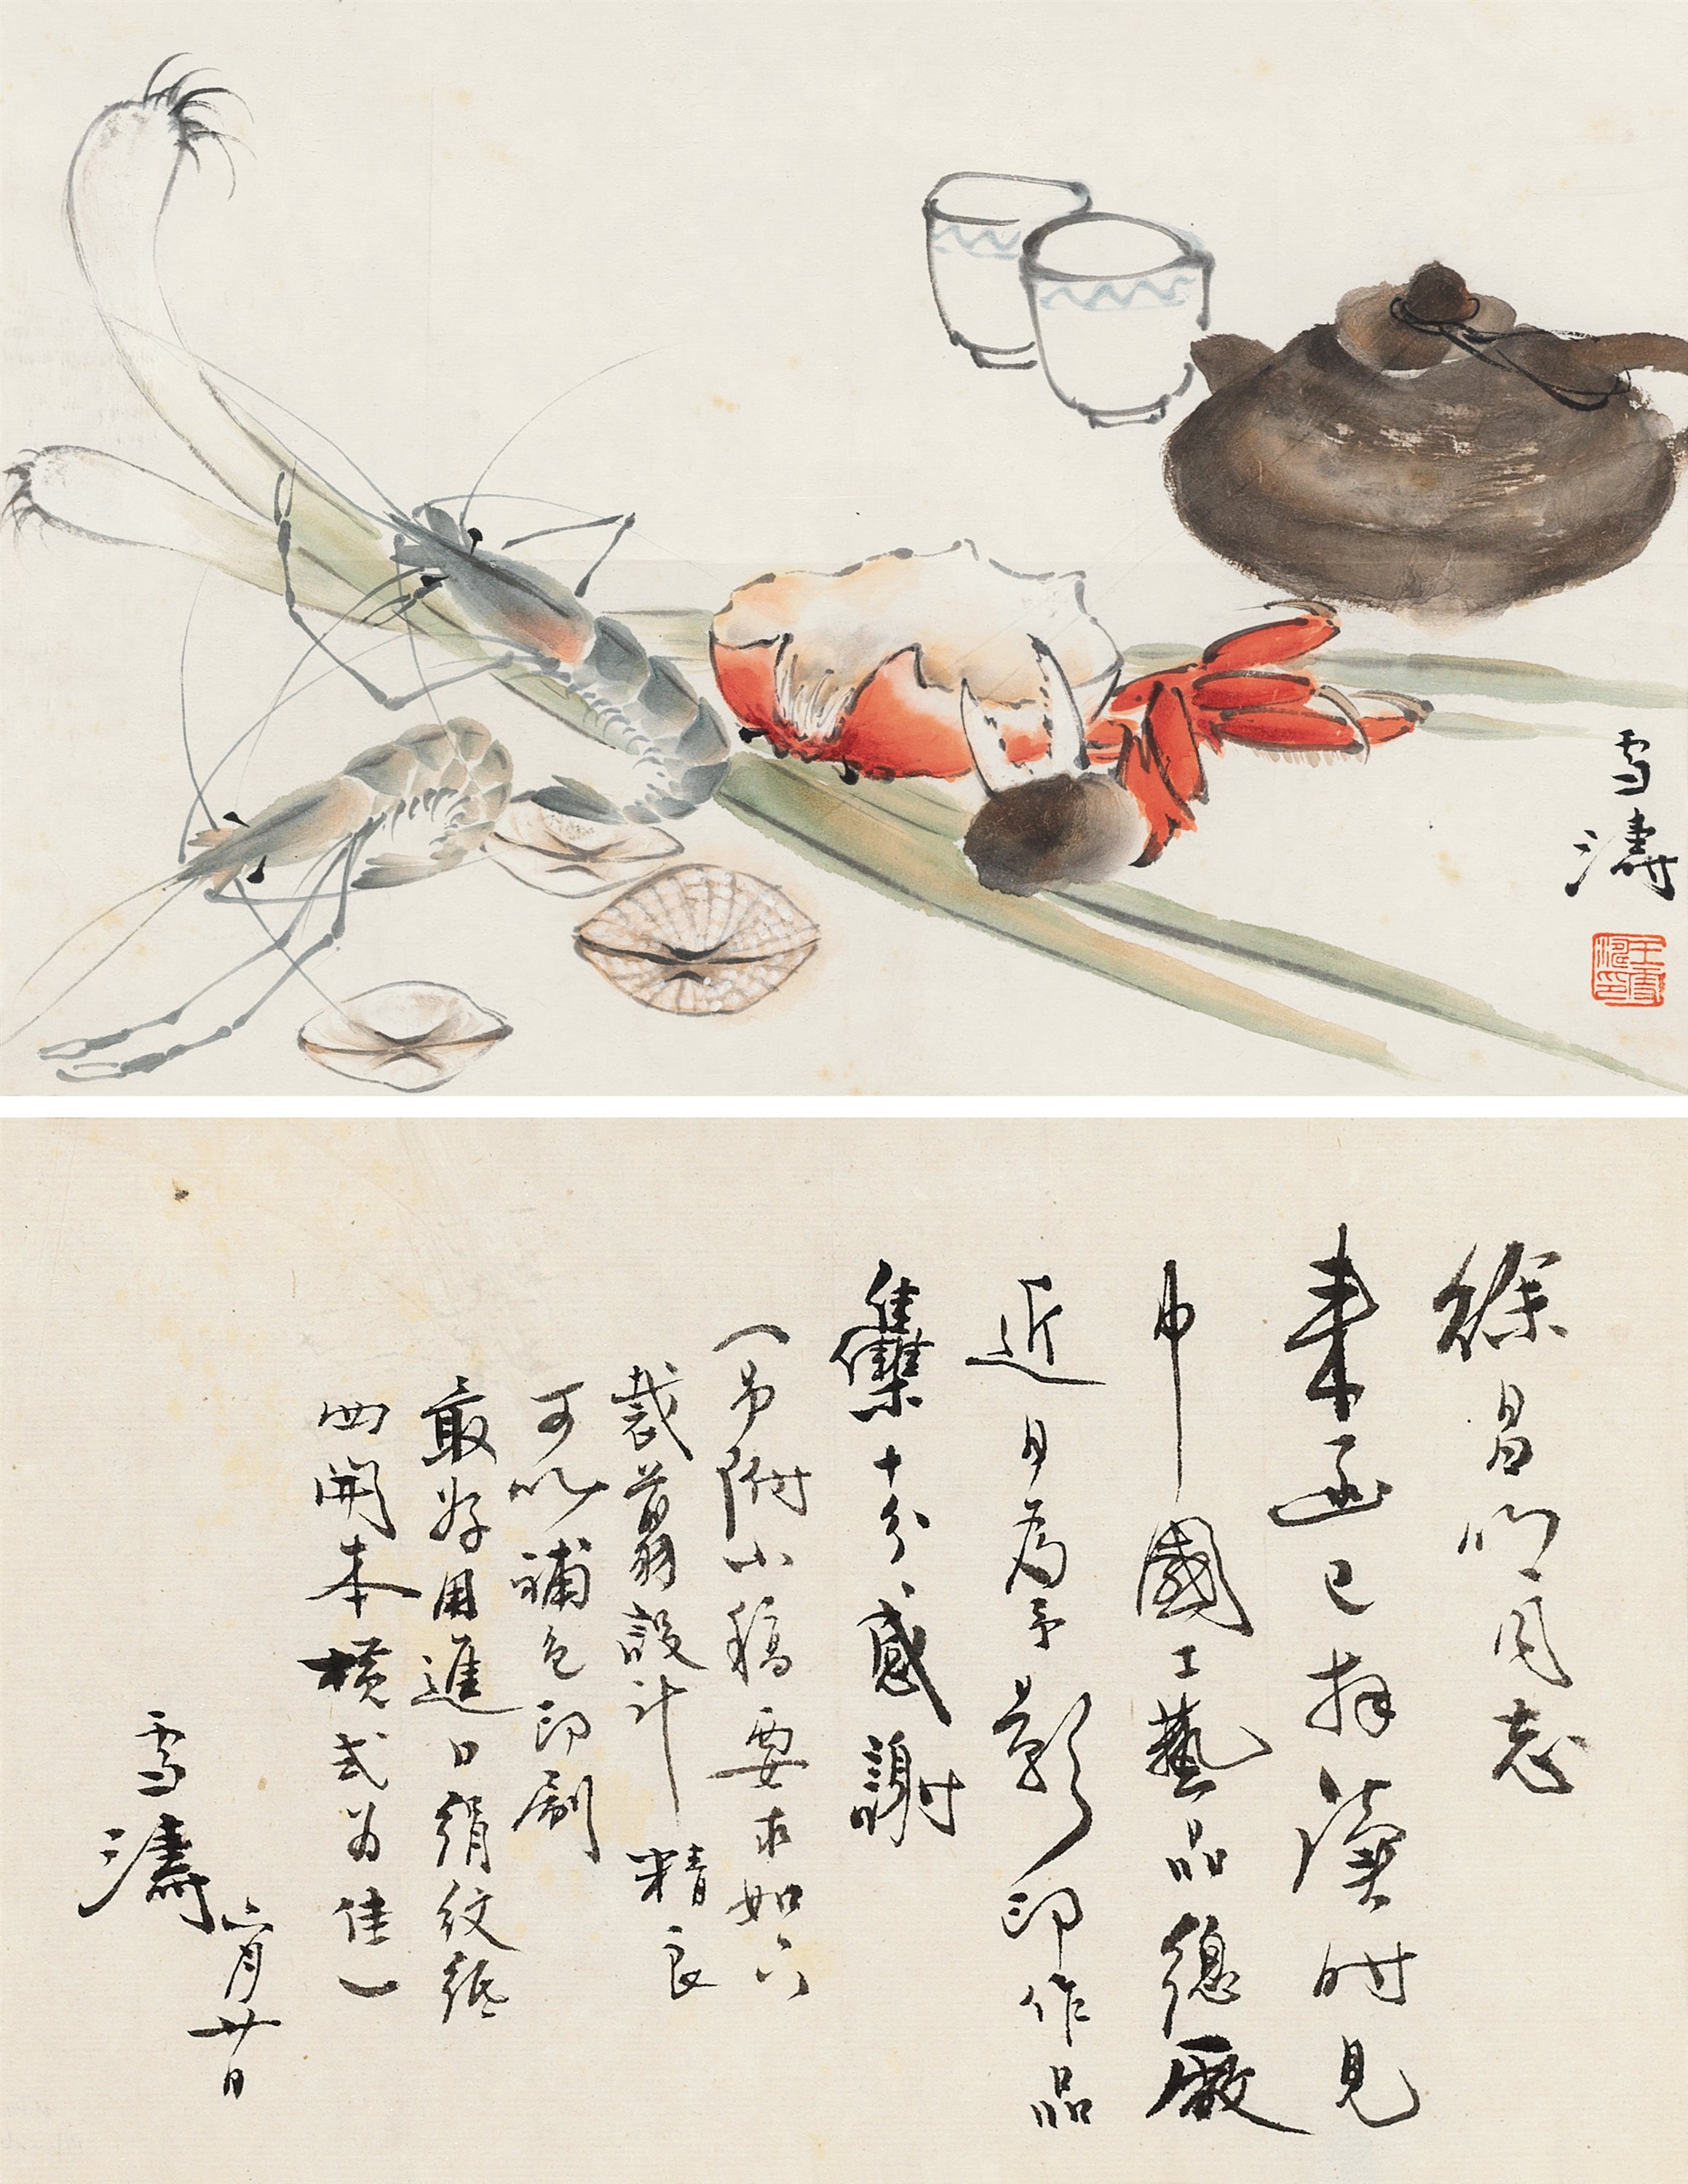 雪濤
王雪濤印
徐昌明同志
来函已拜讀附見
中國工藝品總廠
近日為予影印作品
集十分感謝
(另附小稿要求如下
裁剪設計精良
可以補色印刷
最好用進口絹紋紙
四開本橫式为佳)
雪濤
六月廿日